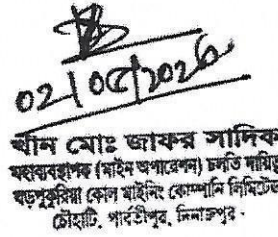 02/05/2026
খান মোঃ জাফর সাদিক
মহাব্যবস্থাপক (মাইন অপারেশন) চলতি দায়িত্ব
বড়পুকুরিয়া কোল মাইনিং কোম্পানি লিমিটেড
চৌহাটি, পার্বতীপুর, দিনাজপুর।